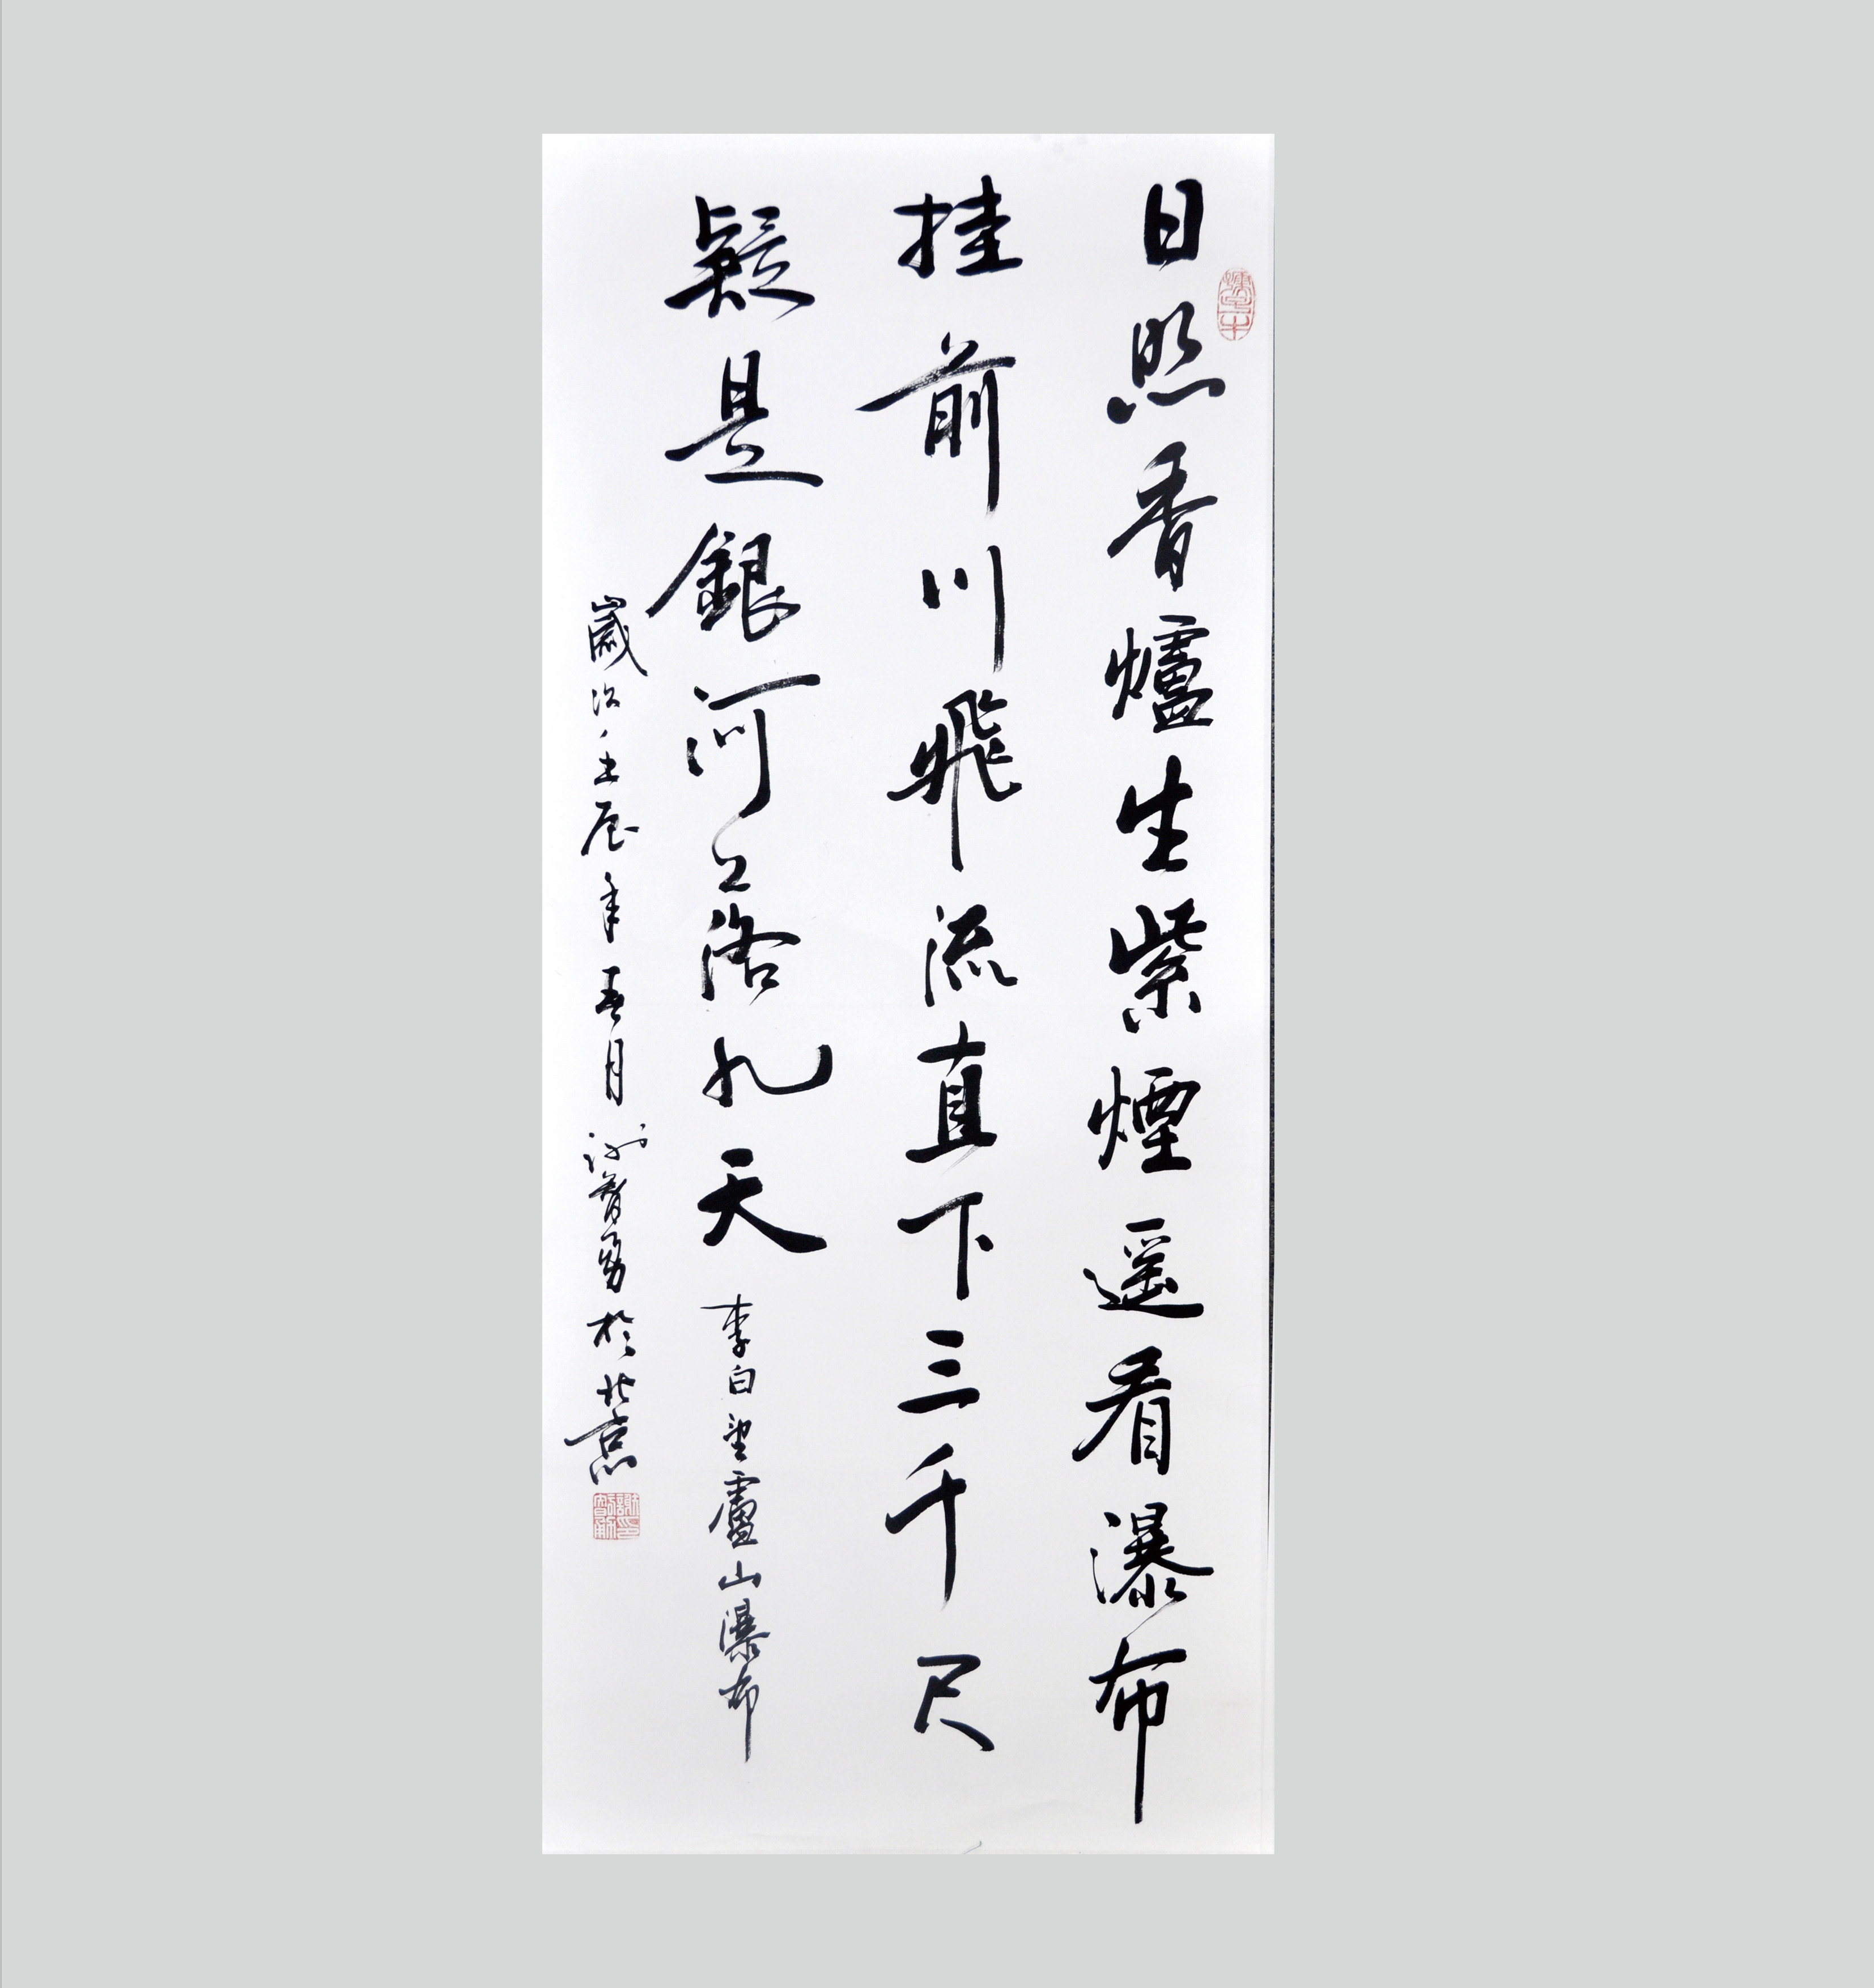 日照香爐生紫煙遥看瀑布
挂前川飛流直下三千尺
疑是銀河落九天 李白望廬山瀑布
歲次壬辰年 月 勇於北京